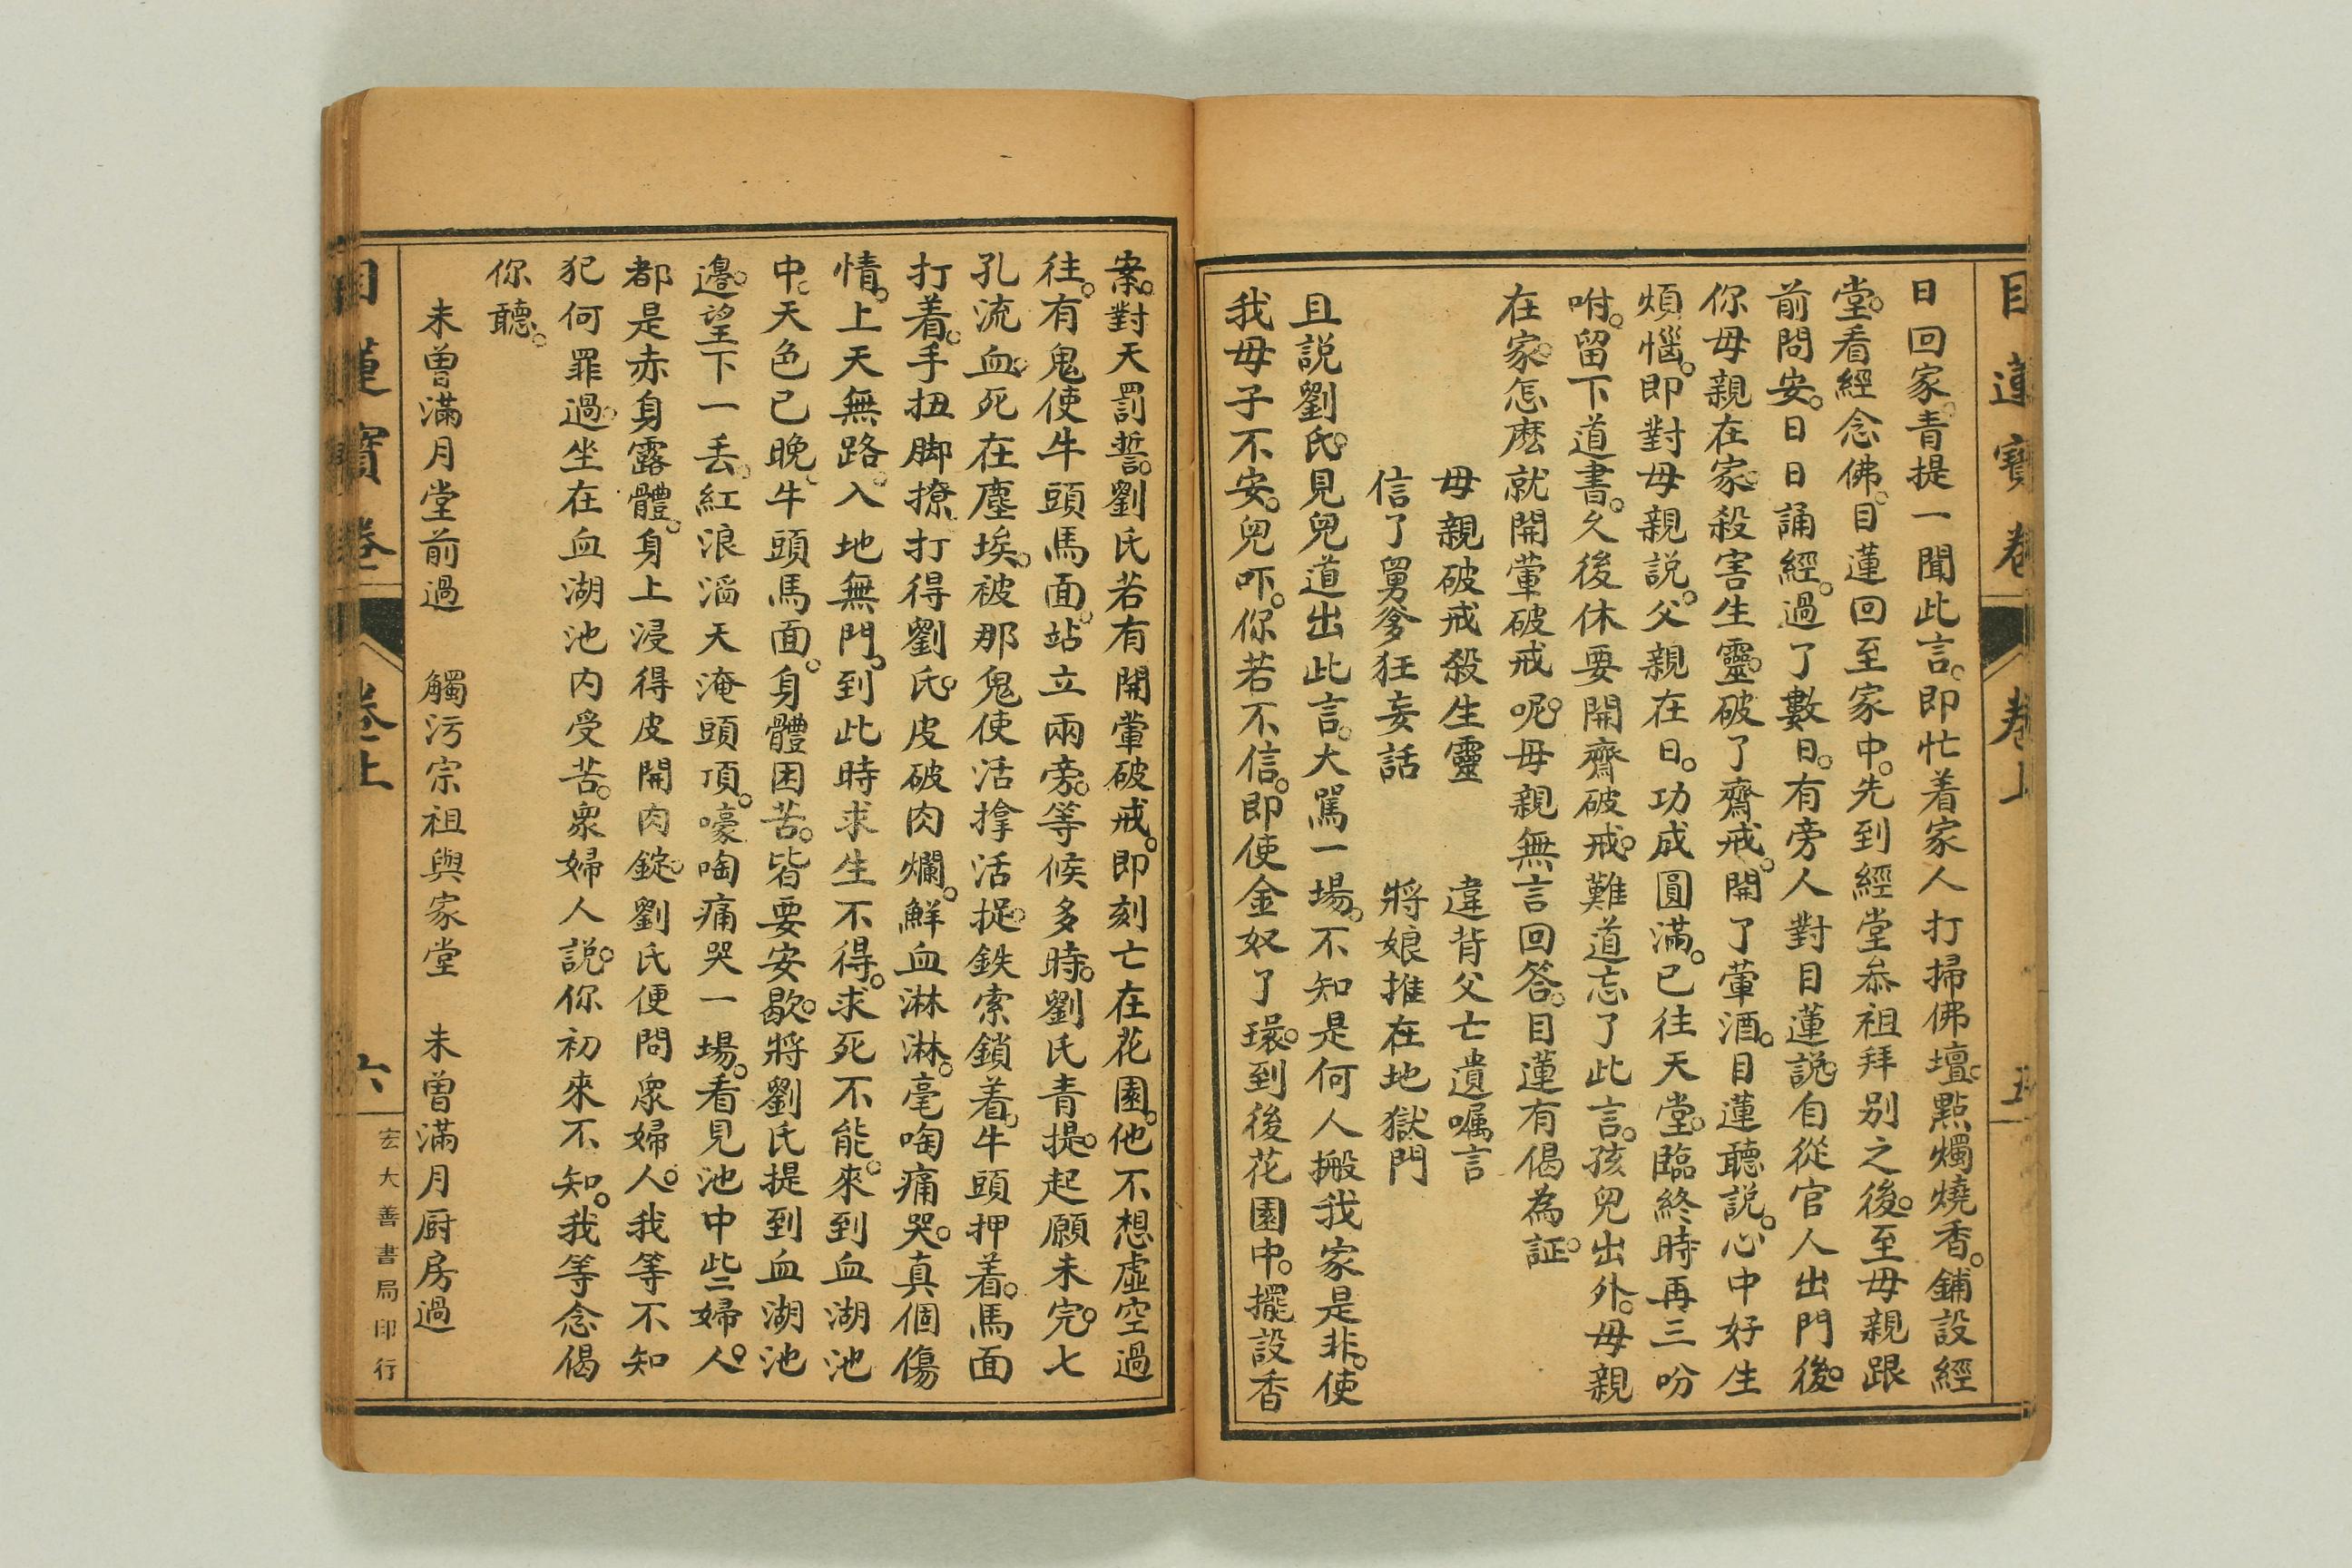 目蓮寶卷 卷上
日回家。青提一聞此言。即忙着家人打掃佛壇。點燭燒香。鋪設經
堂。看經念佛。目蓮回至家中。先到經堂叅祖拜别之後。至母親跟
前問安。日日誦經。過了數日。有旁人對目蓮說。自從官人出門後。
你母親在家。殺害生靈。破了齋戒。開了葷酒。目蓮聽說。心中好生
煩惱。即對母親說。父親在日。功成圓滿。已往天堂。臨終時再三吩
咐。留下道書。久後休要開齋破戒。難道忘了此言。孩兒出外。母親
在家。怎麽就開葷破戒呢。母親無言回答。目蓮有偈為証。
母親破戒殺生靈 違背父亡遺嘱言
信了舅爹狂妄話 將娘推在地獄門
且說劉氏。見兒道出此言。大駡一場。不知是何人搬我家是非。使
我母子不安。兒吓。你若不信。即使金奴了環。到後花園中。擺設香
案。對天罰誓。劉氏若有開葷破戒。即刻亡在花園。他不想虛空過
往。有鬼使牛頭馬面。站立兩旁。等候多時。劉氏青提。起願未完。七
孔流血。死在塵埃。被那鬼使活拿活捉。鉄索鎖着。牛頭押着。馬面
打着。手扭脚撩。打得劉氏。皮破肉爛。鮮血淋淋。毫啕痛哭。真個傷
情。上天無路。入地無門。到此時求生不得。求死不能。來到血湖池
中。天色已晚。牛頭馬面。身體困苦。皆要安歇。將劉氏提到血湖池
邊。望下一丢。紅浪滔天。淹頭頂。嚎啕痛哭一場。看見池中些婦人。
都是赤身露體。身上浸得皮開肉錠。劉氏便問衆婦人。我等不知
犯何罪過。坐在血湖池内受苦。衆婦人說。你初來不知。我等念偈
你聽。
未曾滿月堂前過 觸污宗祖與家堂 未曾滿月厨房過
目蓮寶卷 卷上 六 宏大善書局印行